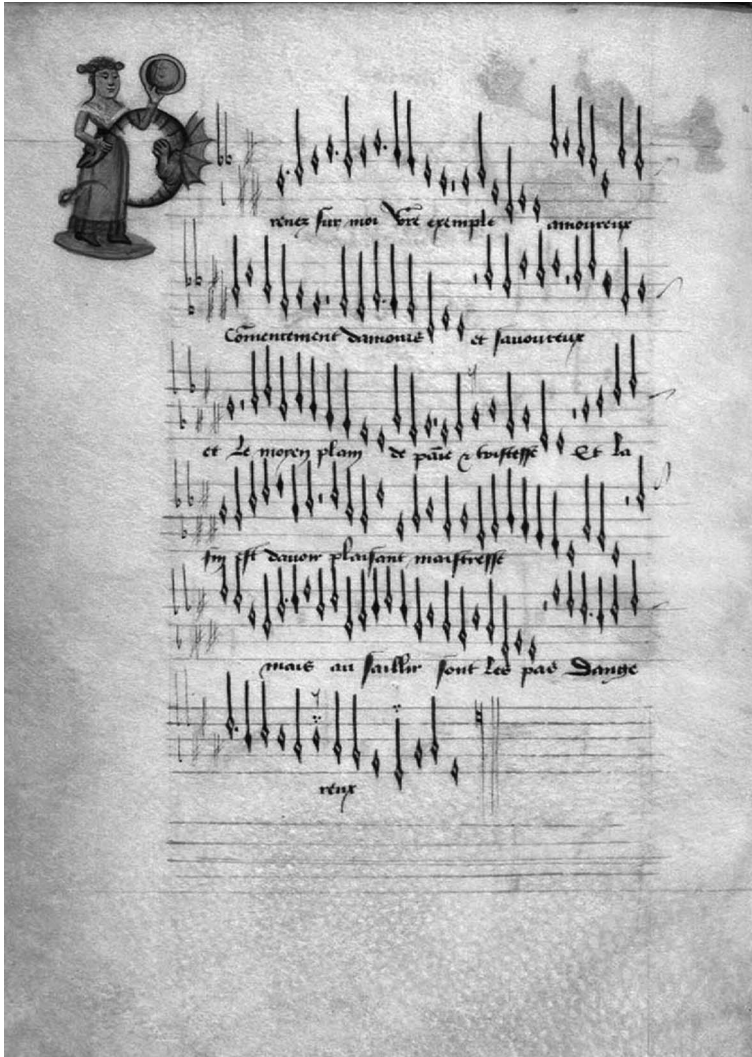 renez sur moi vr̄e exemple amoureux
Cōmencement damours et savoureux
et Le moyen plain de paīe & tristesse Et la
fin est davoir plaisant maistresse
mais au saillir sont les pas Dange
reux